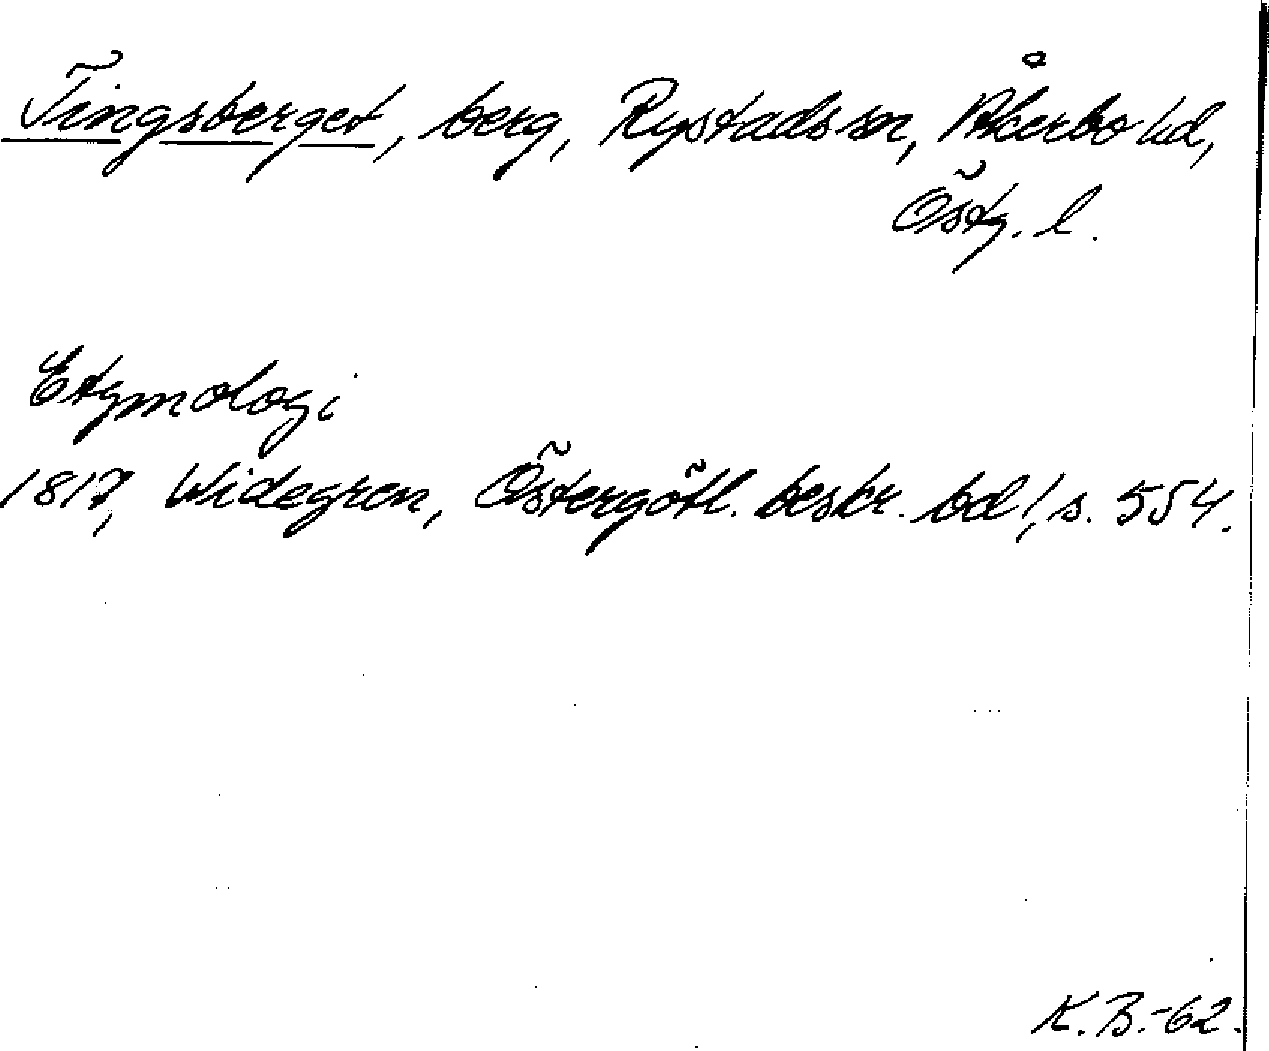 Tingsberget, berg, Rystads sn, Åkerbo hd,
Östg. l.
Etymologi
1817, Widegren, Östergötl. beskr. bd 1, s. 554.
K.B.-62.